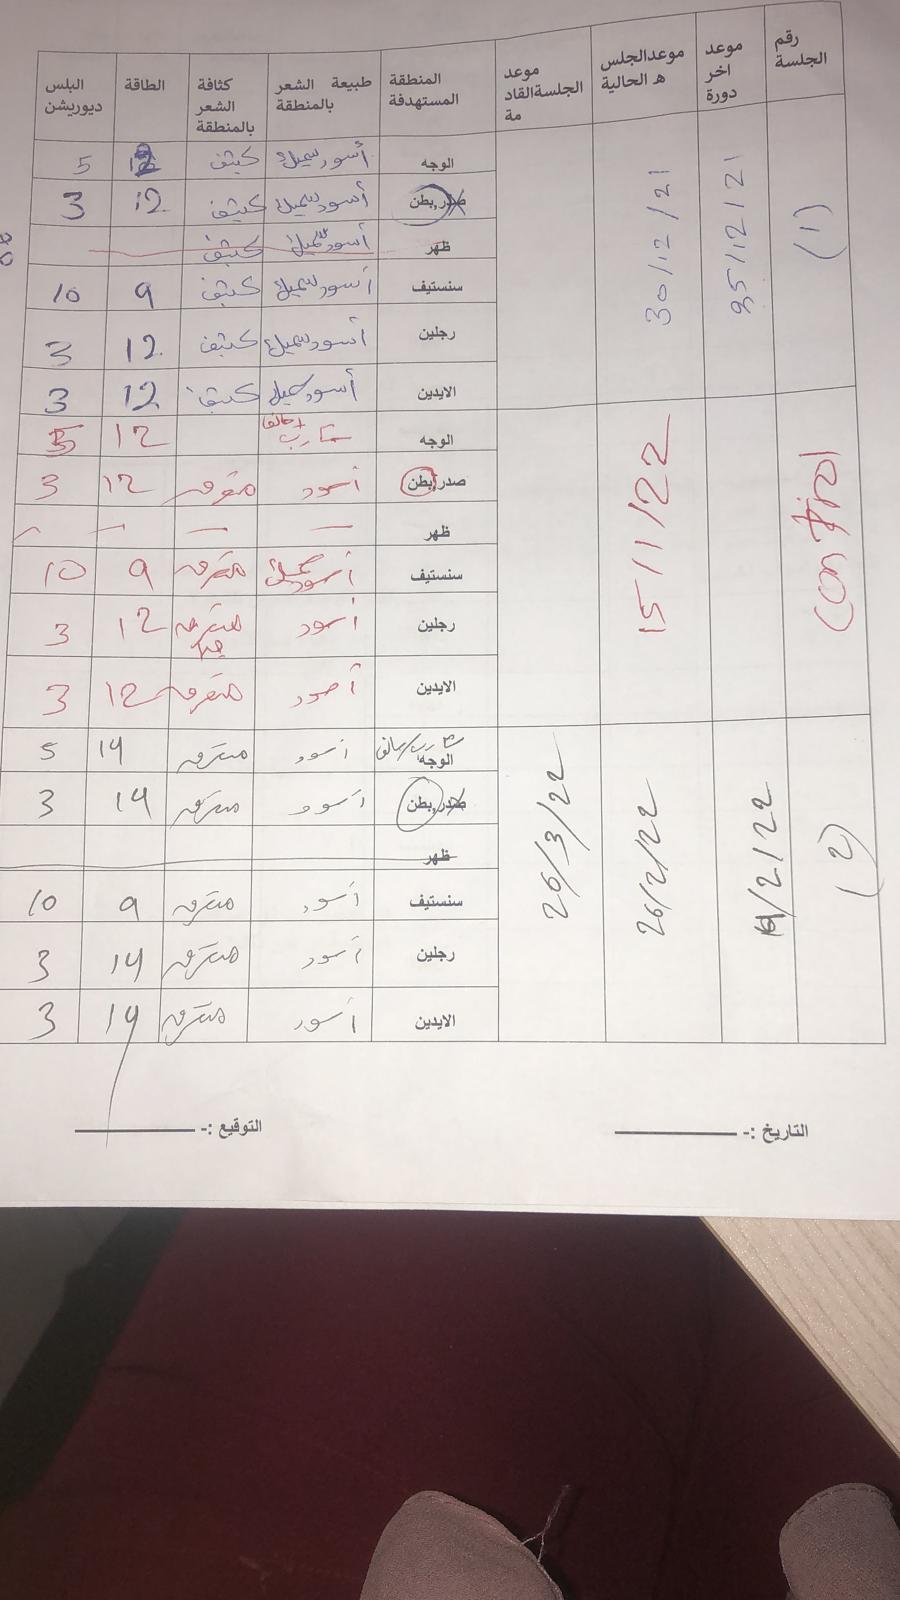 رقم الجلسة | موعد اخر دورة | موعدالجلس ه الحالية | موعد الجلسةالقاد مة | المنطقة المستهدفة | طبيعة الشعر بالمنطقة | كثافة الشعر بالمنطقة | الطاقة | البلس ديوريشن
(1) | 25/12/21 | 30/12/21
الوجه | أسود سميك | كثيف | 12 | 5
صدر,بطن | أسود سميك | كثيف | 12 | 3
ظهر | أسود سميك | كثيف
سنستيف | أسود سميك | كثيف | 9 | 10
رجلين | أسود سميك | كثيف | 12 | 3
الايدين | أسود سميك | كثيف | 12 | 3
15/1/22
الوجه | شارب | 12 | 5
صدر,بطن | أسود | متفرق | 12 | 3
ظهر | – | – | – | –
سنستيف | أسود سميك | متفرق | 9 | 10
رجلين | أسود | متفرق | 12 | 3
الايدين | أسود | متفرق | 12 | 3
(2) | 19/2/22 | 26/2/22 | 26/3/22
شارب/سالف
الوجه | أسود | متفرق | 14 | 5
صدر,بطن | أسود | متفرق | 14 | 3
ظهر
سنستيف | أسود | متفرق | 9 | 10
رجلين | أسود | متفرق | 14 | 3
الايدين | أسود | متفرق | 14 | 3
التاريخ :- التوقيع :-